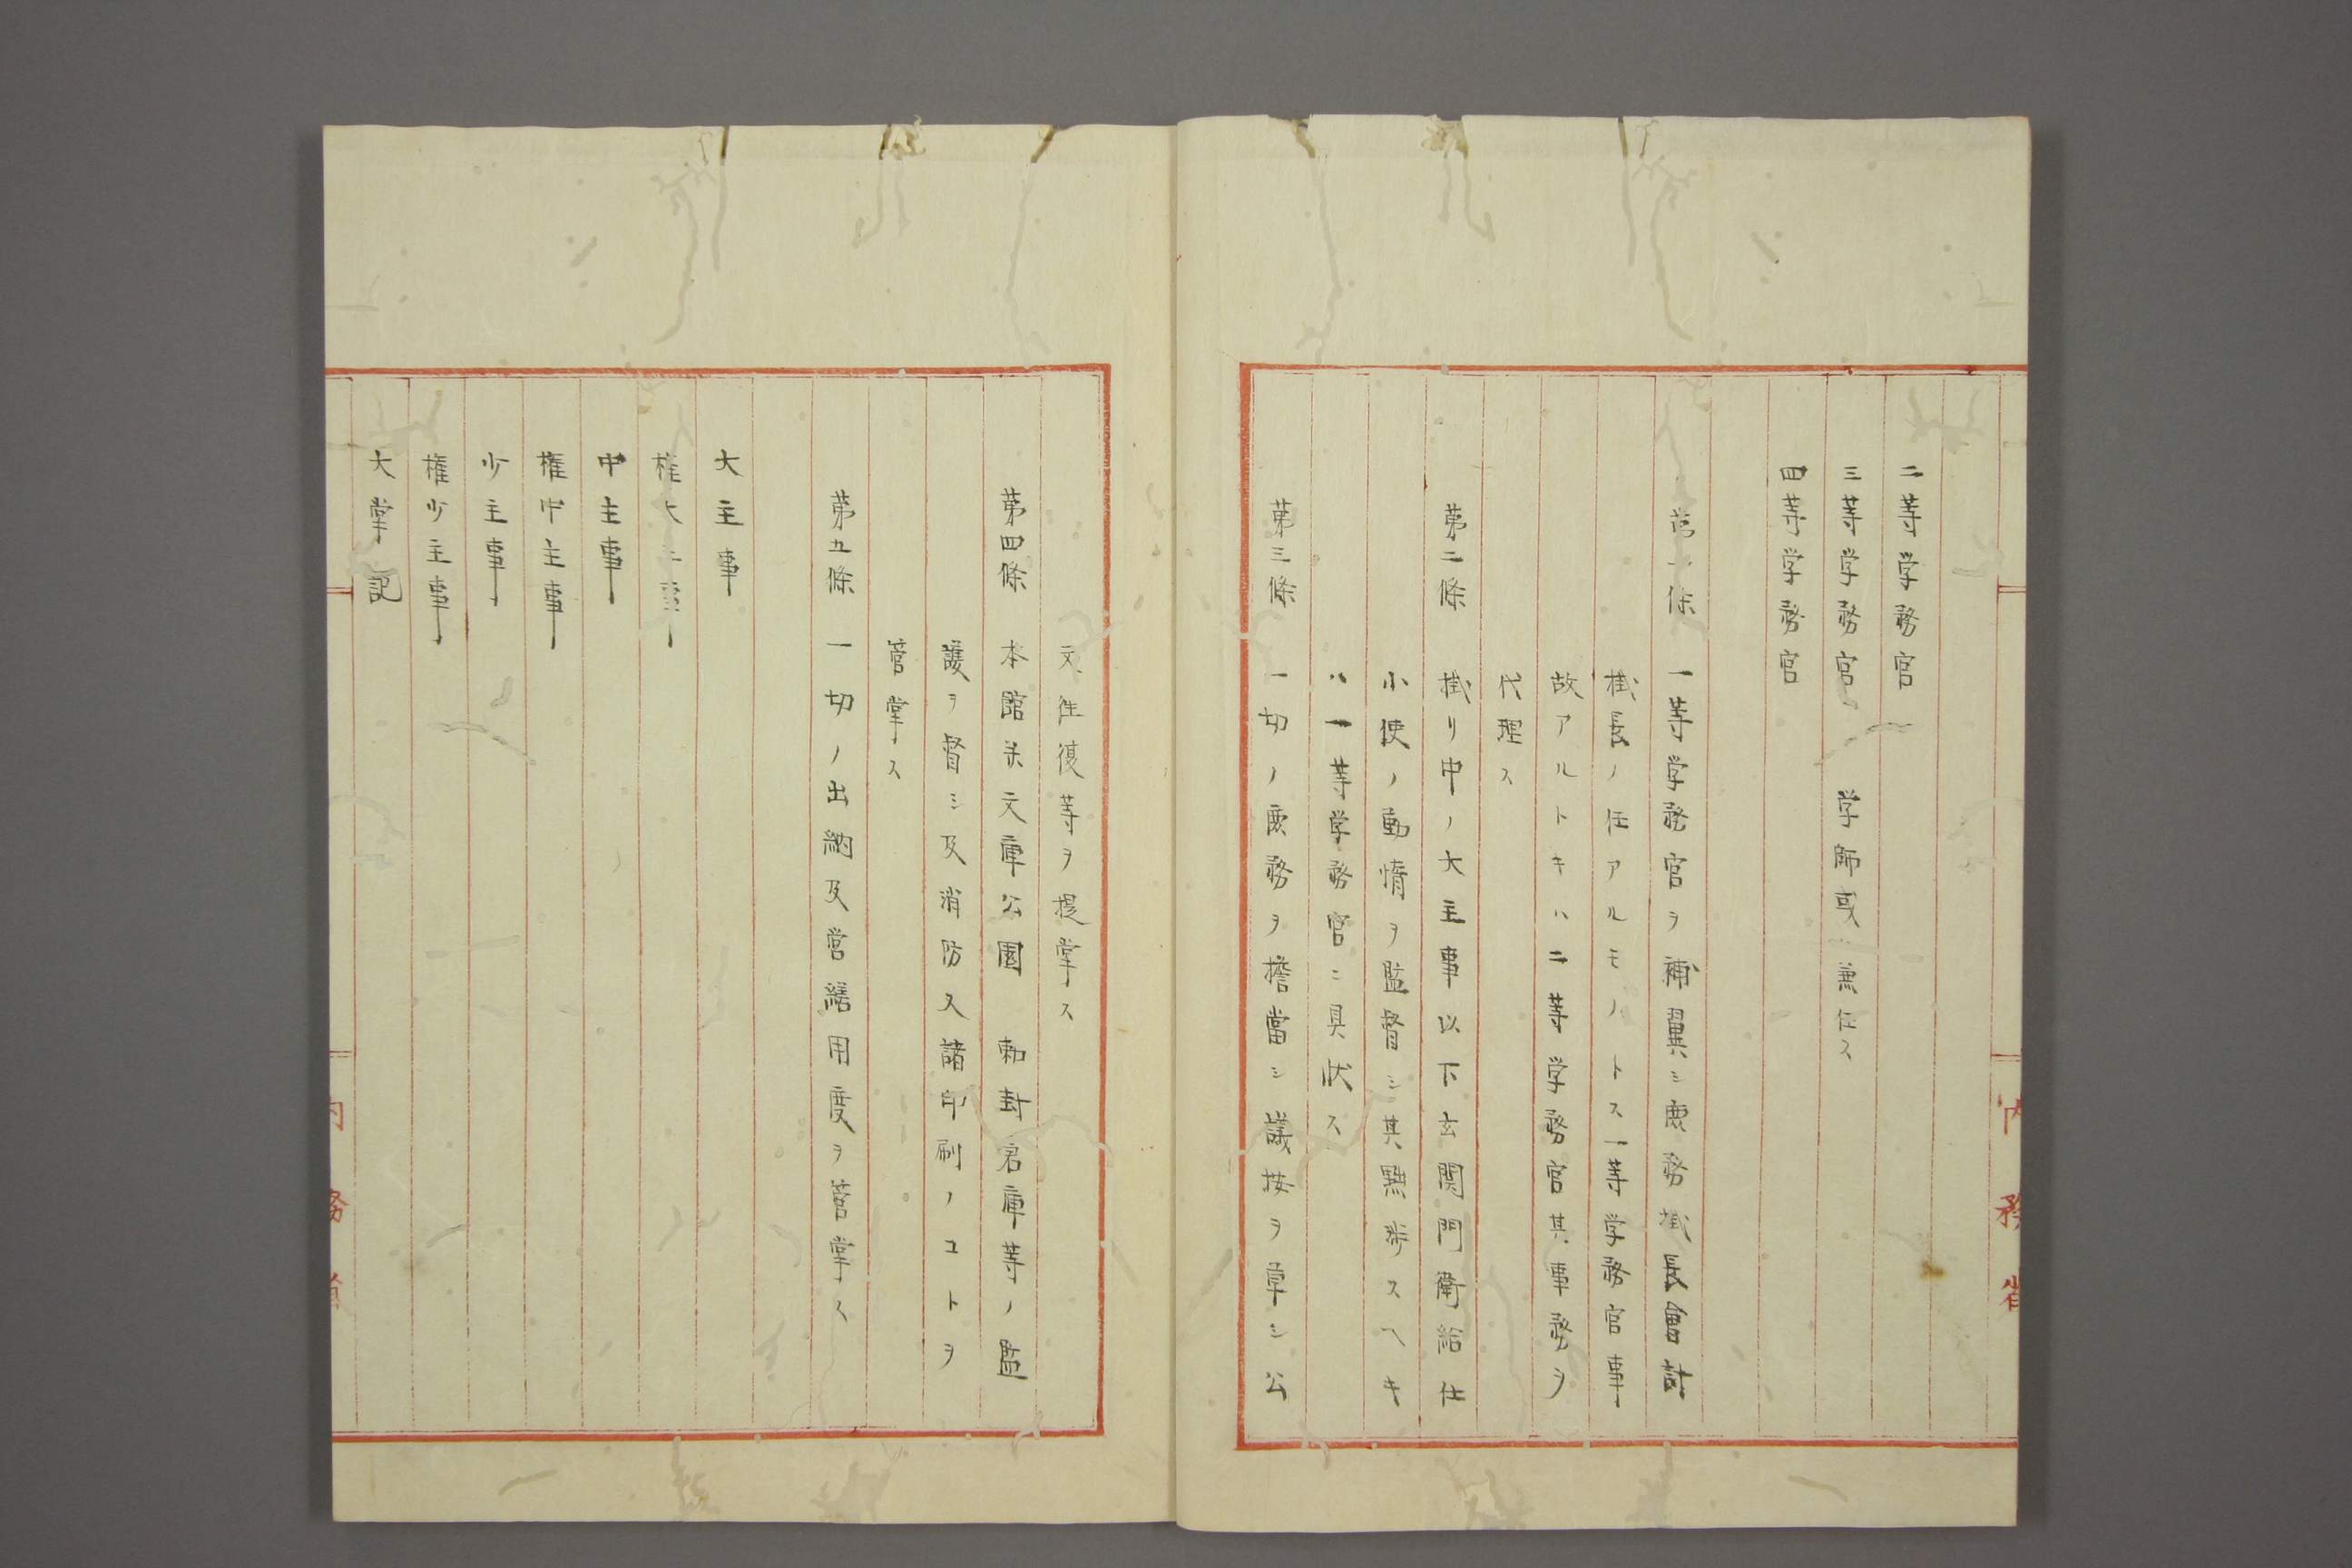 二等学務官
三等学務官 学師或ハ兼任ス
四等学務官
第一条 一等学務官ヲ補翼シ庶務掛長會計
掛長ノ任アルモノトス一等学務官事
故アルトキハ二等学務官其事務ヲ
代理ス
第二條 掛リ中ノ大主事以下玄関門衛給仕
小使ノ動惰ヲ監督シ其黜陟スヘキ
ハ一等学務官ニ具状ス
第三條 一切ノ庶務ヲ擔當シ議按ヲ草シ公
内務省
文往復等ヲ提掌ス
第四條 本舘並文庫公園 勅封宕庫等ノ監
護ヲ督シ及消防又諸印刷ノコトヲ
菅掌ス
第五條 一切ノ出納及営繕用度ヲ菅掌ス
大主事
権大主事
中主事
権中主事
少主事
権少主事
大掌記
内務省